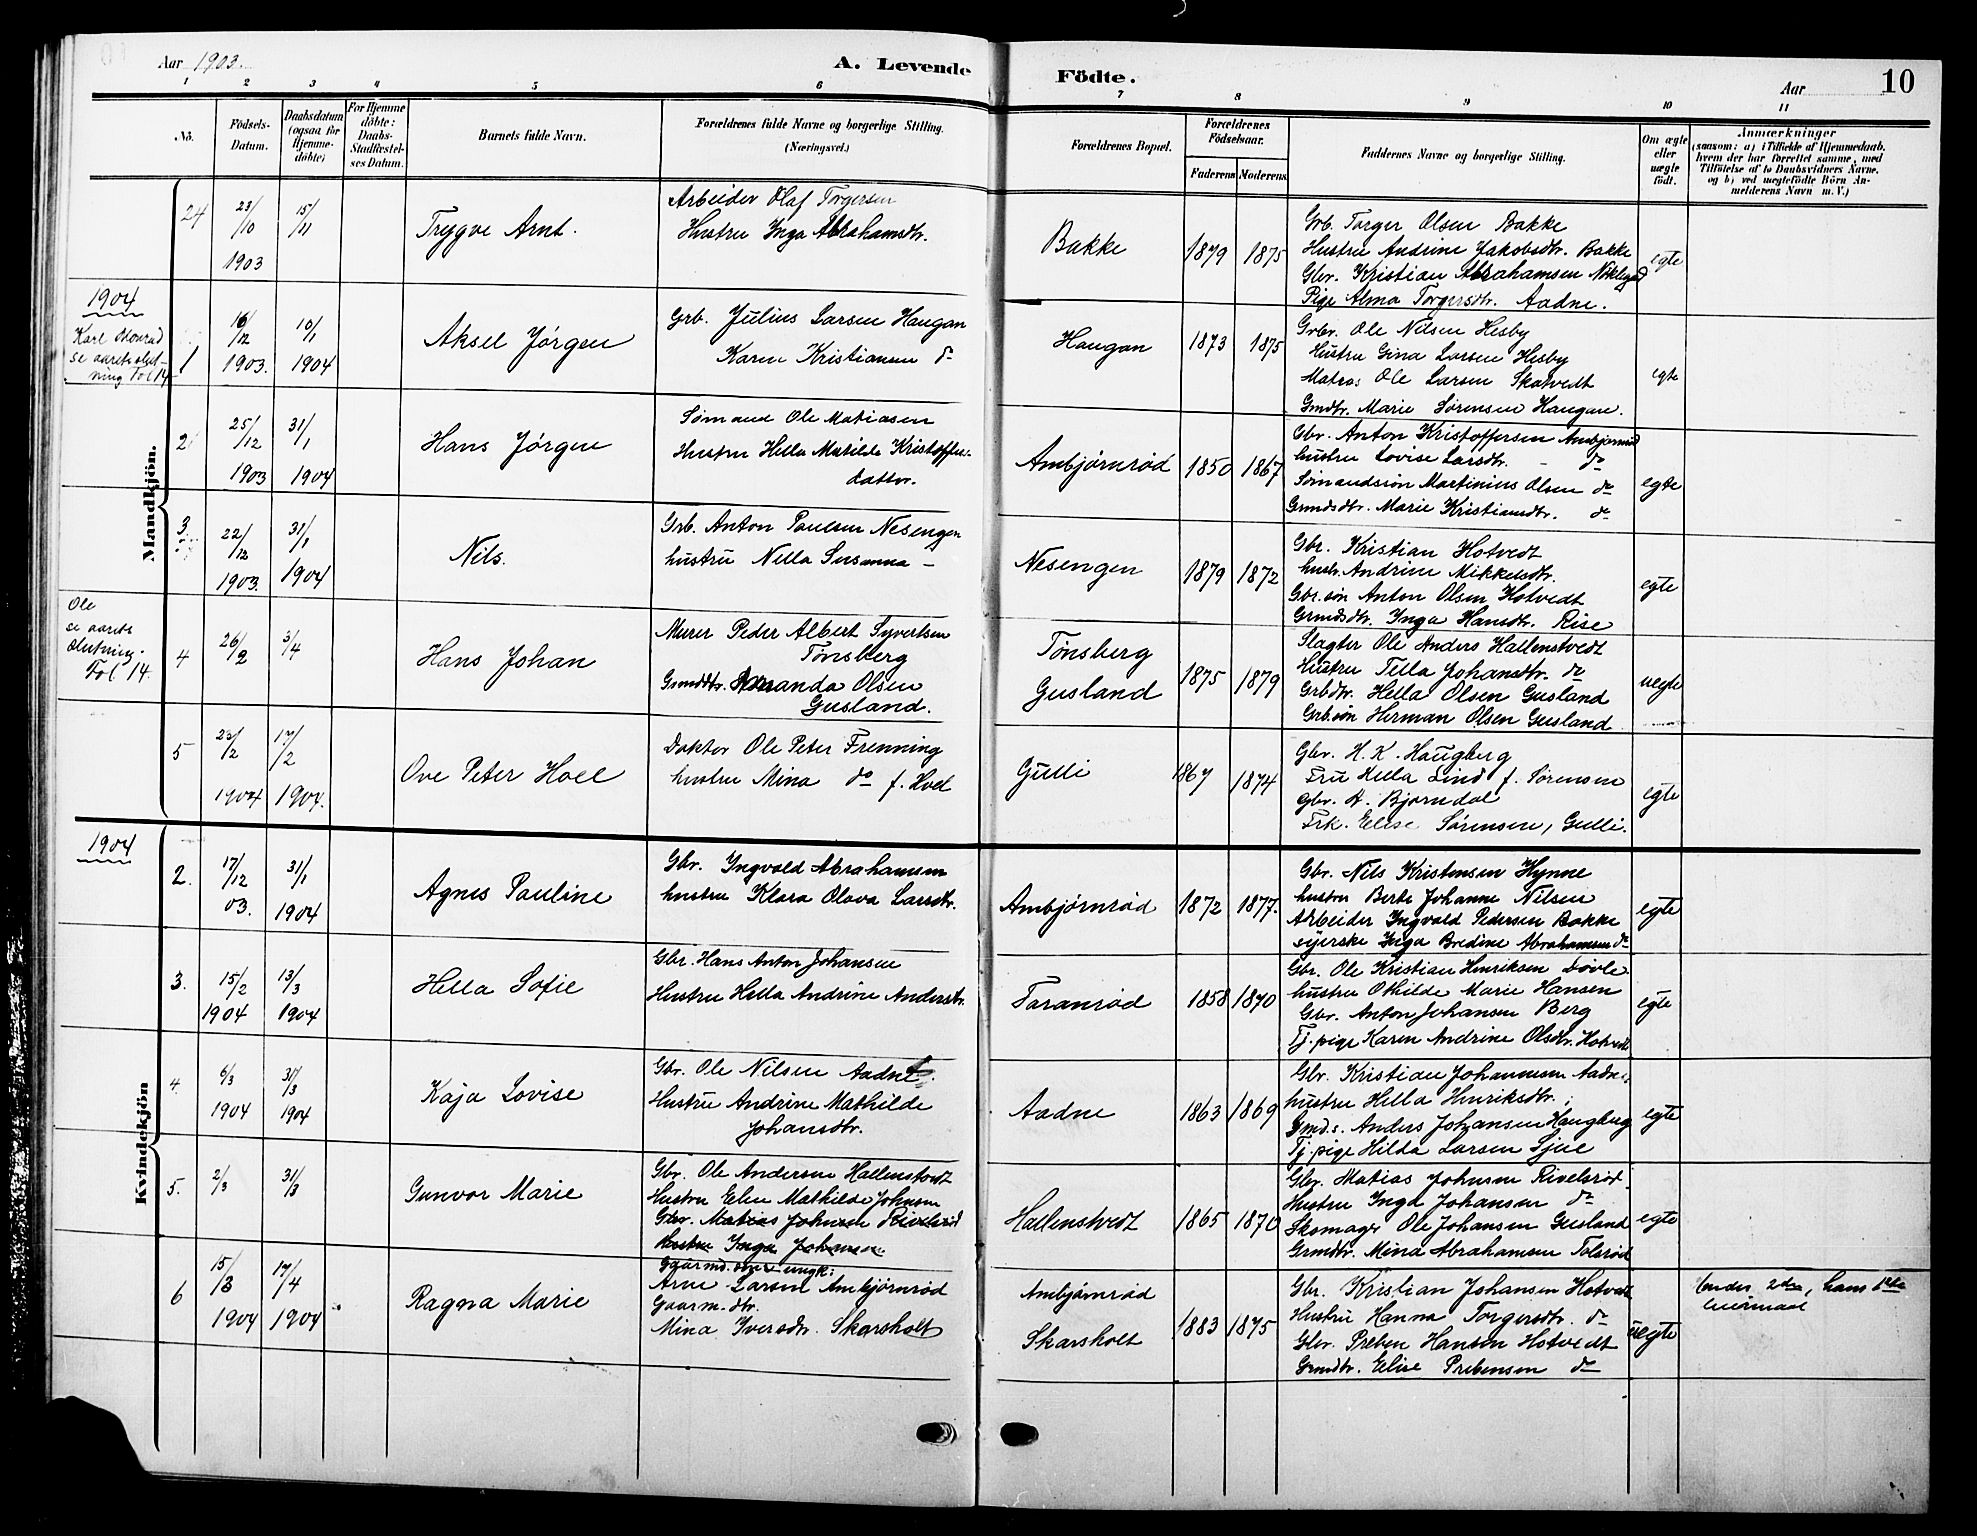 Aar 1903.
A. Levende Födte.
Aar
10
1 2 3 4 5 6 7 8 9 10 11
No.
Födsels-Datum.
Daabsdatum (ogsaa for Hjemme-döbte)
For Hjemme döbte: Daabs-Stadfæstelses Datum.
Barnets fulde Navn.
Forældrenes fulde Navne og borgerlige Stilling. (Næringsvei.)
Forældrenes Bopæl.
Forældrenes Födselsaar.
Faderens Moderens
Faddernes Navne og borgerlige Stilling.
Om ægte eller uægte födt.
Anmærkninger
(saasom: a) i Tilfælde af Hjemmedaab. hvem der har forrettet samme, med Tilföielse af to Daabsvidners Navne. og b) ved uægtefödte Börn Anmelderens Navn m. V.)
Mandkjön.
24
23/10 1903
15/11
Trygve Arnt.
Arbeider Olaf Torgersen
Hustru Inga Abrahamsdtr.
Bakke
1879 1875
Grb. Torger Olsen Bakke
Hustru Andrine Jakobsdtr. Bakke
Gbr. Kristian Abrahamsen
Pige Alma Torgersdtr. Aadne.
egte
1904
Karl
se aarets slut-
ning Fol 14
1
16/12 1903.
10/1 1904
Aksel Jörgen
Grb. Julius Larsen Haugan
Karen Kristiansen do
Haugan
1873 1875
Grbr. Ole Nilsen Hesby
Hustru Gina Larsen Hesby
Matros Ole Larsen Skatvedt
Gmdtr. Marie Sörensen Haugan.
egte
2
25/12 1903
31/1 1904
Hans Jörgen
Sömand Ole Matiasen
Hustru Hella Matilde Kristoffers-
datter.
Ambjörnröd
1850 1867
Gbr. Anton Kristoffersen Ambjörnröd
hustru Lovise Larsdtr. - do
Sömandssön Martinius Olsen do
Grmdsdtr. Marie Kristiansdtr. do
egte
3
22/12 1903.
31/1 1904
Nils.
Grb. Anton Paulsen Nesengen
hustru Nilla Susanna -
Nesengen
1879 1872
Gbr. Kristian Hotvedt
hustr. Andrine Mikkelsdtr.
Gbr.sön Anton Olsen Hotvedt
Grmdsdtr. Inga Hansdtr. Rise
egte
Ole
se aarets
slutning.
Fol 14.
4
26/2
3/4
Hans Johan
Murer Peder Albert Syvertsen
Tönsberg
Grmddtr. Amanda Olsen
Gusland.
Tönsberg
Gusland
1875 1879
Slagter Ole Anders Hallenstvedt
Hustru Tella Johansdtr. do
Grbdtr. Hella Olsen Gusland
Grb.sön Herman Olsen Gusland
uegte
5
23/2 1904
17/2 1904.
Ove Peter Hoel
Doktor Ole Peter Frenning
hustru Mina do f. Hoel
Gulli
1867 1874
Gbr. H. K. Haugberg
Fru Hella Lind f. Sörensen
Gbr. A. Bjorndal
Frk. Elise Sörensen, Gulli.
egte
1904
Kvindekjön
2.
17/12 03.
31/1 1904
Agnes Pauline
Gbr. Ingvald Abrahamsen
hustru Klara Olava Larsdtr.
Ambjörnröd
1872 1877.
Gbr. Nils Kristensen Hynne
hustru Berte Johanne Nilsen
Arbeider Ingvald Pedersen Bakke
syerske Inga Bredine Abrahamsen do
egte
3.
15/2 1904
13/3 1904
Hella Sofie
Gbr. Hans Anton Johansen
Hustru Hella Andrine Andersdtr.
Taranröd
1858 1870
Gbr. Ole Kristian Henriksen Dovle
hustru Othilde Marie Hansen
Gbr. Anton Johansen Berg
Tj. pige Karen Andrine Olsdtr. Hotvedt
egte
4
6/3 1904
31/3 1904
Kaja Lovise
Gbr. Ole Nilsen Aadne.
Hustru Andrine Mathilde
Johansdtr.
Aadne
1863 1869
Gbr. Kristian Johannesen Aadne,
hustru Hella Henriksdtr.
Gmd.s. Anders Johansen Haugberg
Tj. pige Hilda Larsen Sjue
egte
5.
2/3
31/3
Gunvor Marie
Gbr. Ole Andersen Hallenstvedt
Hustru Elen Mathilde Johnsen
Gbr. Matias Johnsen Rivelsröd
Hustru Inga Johansen
Hallenstvedt
1865 1870
Gbr. Matias Johnsen Rivelsröd.
Hustru Inga Johansen do
Skomager Ole Johansen Gusland
Grmdtr. Mina Abrahamsen Tolsröd
egte
6
15/3 1904
17/4 1904
Ragna Marie
Gaarmd.sön ungk:
Arne Larsen Ambjörnröd
Gaarm.dtr.
Mina Iversdtr. Skarsholt
Ambjörnröd
Skarsholt
1883 1875
Gbr. Kristian Johansen Hotvedt
Hustru Hanna Torgersdtr. do
Gbr. Preben Hansen Hotvedt
Grmdtr. Elise Prebensen do
uegte
Hendes 2det, hans 1ste
leiermaal